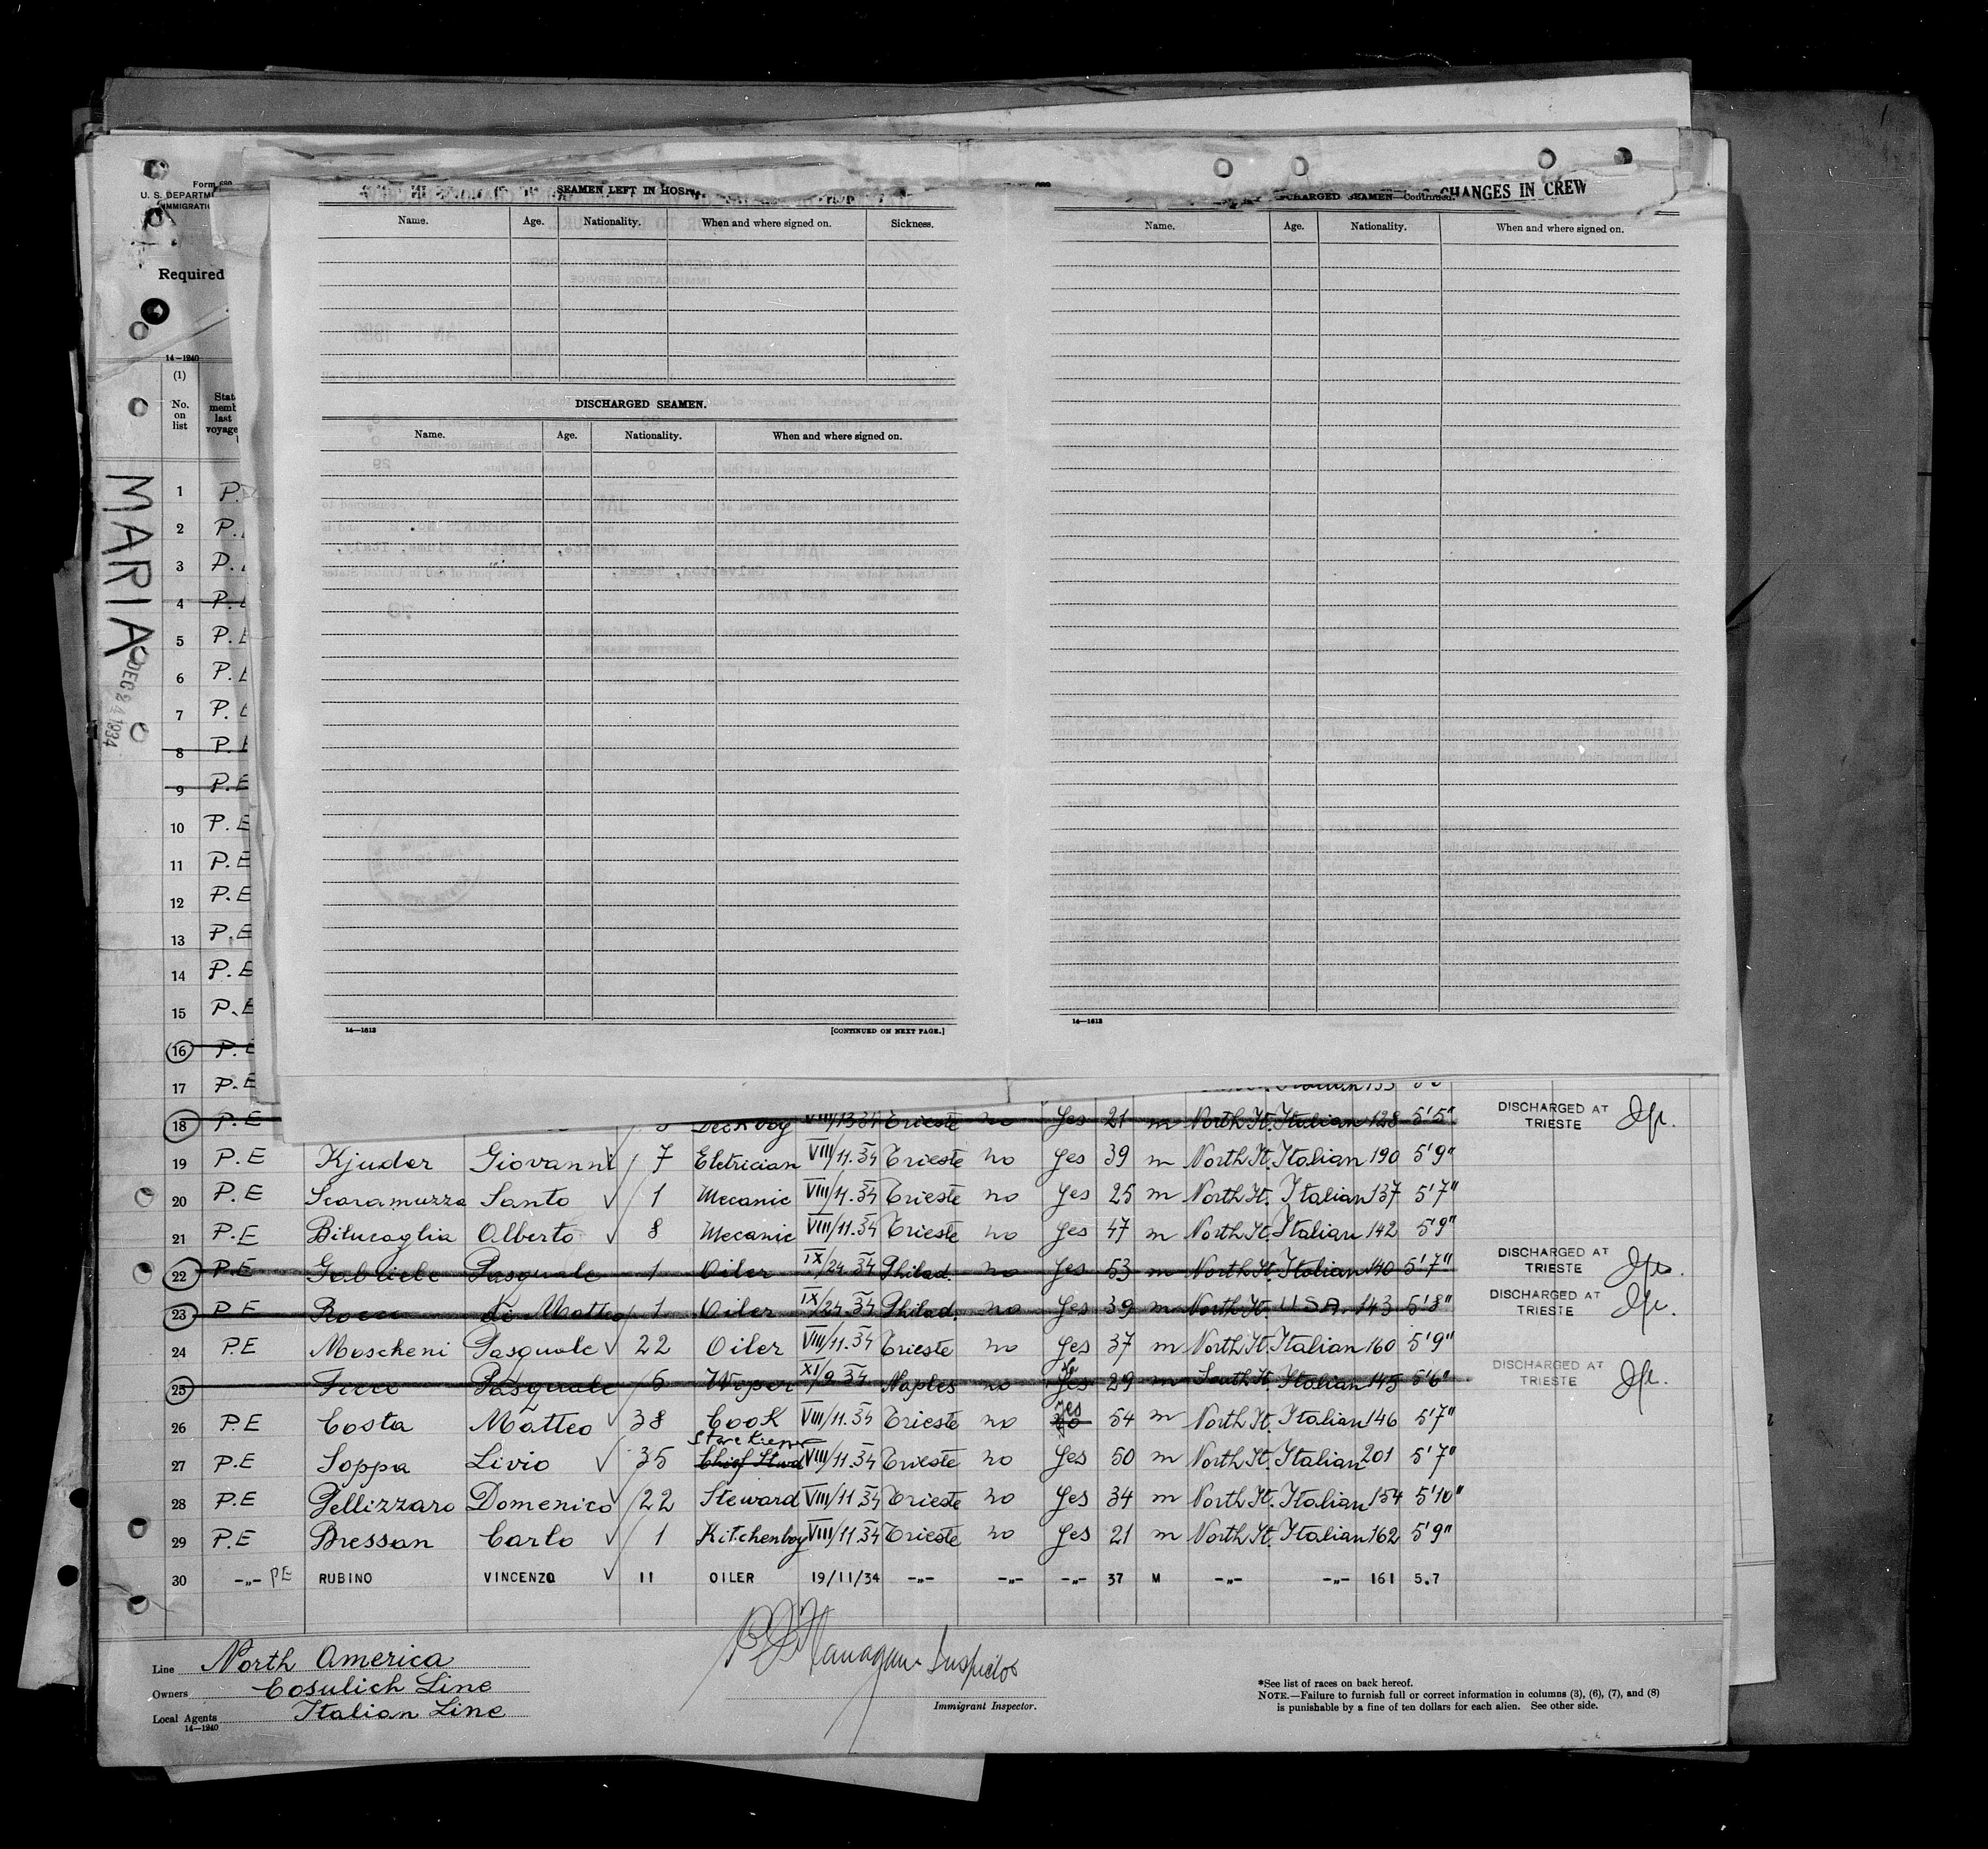 Form 680
U. S. DEPARTM
IMMIGRATI
Required
14—1240
(1)
No. on list
State memb last voyage
MARIA
DEC 24 1934
SEAMEN LEFT IN HOSP
Name. Age. Nationality. When and where signed on. Sickness.
DISCHARGED SEAMEN.
Name. Age. Nationality. When and where signed on.
14—1613 [CONTINUED ON NEXT PAGE.]
CHARGED SEAMEN—Continued. CHANGES IN CREW
Name. Age. Nationality. When and where signed on.
14—1613
1 P.
2 P.
3 P.
4 P.
5 P.E
6 P.E
7 P.E
8 P.E
9 P.E
10 P.E
11 P.E
12 P.E
13 P.E
14 P.E
15 P.E
16 P.E
17 P.E
18 P.E Deck boy VIII/13 34 Trieste no Yes 21 m North It. Italian 128 5'5" DISCHARGED AT TRIESTE
19 P.E Kjuder Giovanni 7 Eletrician VIII/11.34 Trieste no Yes 39 m North It. Italian 190 5'9"
20 P.E Scaramuzza Santo 1 Mecanic VIII/11.34 Trieste no Yes 25 m North It. Italian 137 5'7"
21 P.E Bilucaglia Alberto 8 Mecanic VIII/11.34 Trieste no Yes 47 m North It. Italian 142 5'9"
22 P.E Gabriele Pasquale 1 Oiler IX/24.34 Philad. no Yes 53 m North It. Italian 140 5'7" DISCHARGED AT TRIESTE
23 P.E Rocco di Matteo 1 Oiler IX/24.34 Philad. no Yes 39 m North It. USA 143 5'8" DISCHARGED AT TRIESTE
24 P.E Moscheni Pasquale 22 Oiler VIII/11.34 Trieste no Yes 37 m North It. Italian 160 5'9"
25 Pasquale 6 Wiper XI/9.34 Naples no Yes 29 m South It. Italian 145 5'6" DISCHARGED AT TRIESTE
26 P.E Costa Matteo 38 Cook VIII/11.34 Trieste no yes 54 m North It. Italian 146 5'7"
27 P.E Soppa Livio 35 Chief Stwd Store Kieper VIII/11.34 Trieste no Yes 50 m North It. Italian 201 5'7"
28 P.E Pellizzaro Domenico 22 Steward VIII/11.34 Trieste no Yes 34 m North It. Italian 154 5'10"
29 P.E Bressan Carlo 1 Kitchenboy VIII/11.34 Trieste no Yes 21 m North It. Italian 162 5'9"
30 -"- PE RUBINO VINCENZO 11 OILER 19/11/34 -"- -"- -"- 37 M -"- -"- 161 5.7
Line North America
Owners Cosulich Line
Local Agents Italian Line
14—1240
Flanagan Inspector
Immigrant Inspector.
*See list of races on back hereof.
NOTE.—Failure to furnish full or correct information in columns (3), (6), (7), and (8)
is punishable by a fine of ten dollars for each alien. See other side.